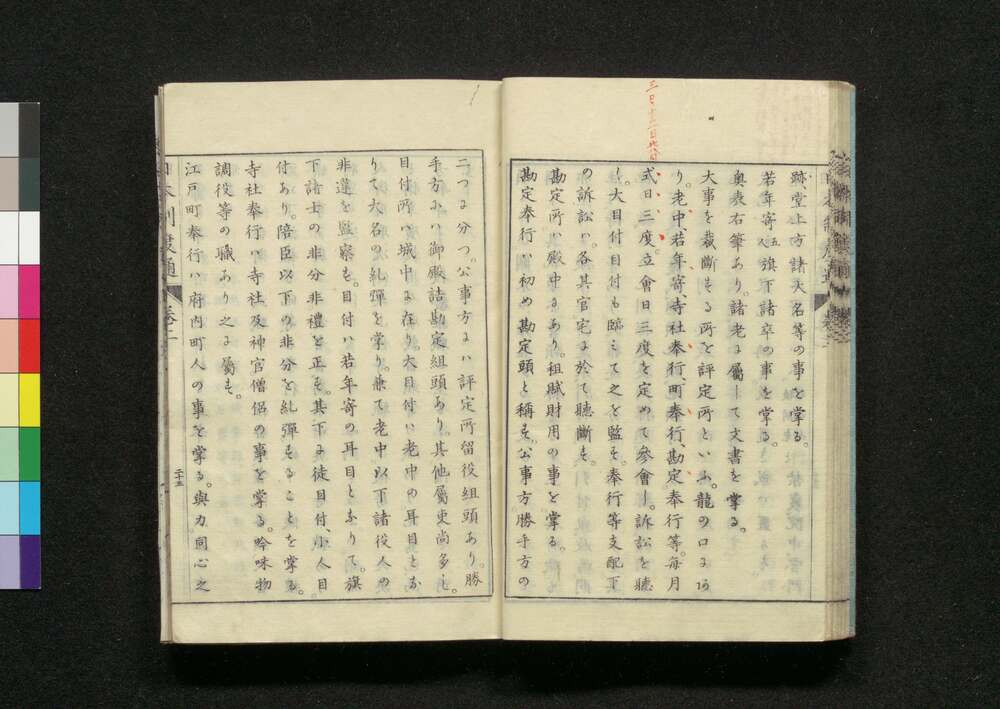 三日十二日廿日
跡、堂上方諸大名等の事を掌る。
若年寄五人旗下諸卒の事を掌る。
奥表右筆あり。諸老ニ屬して文書を掌る。
大事を裁斷する所を評定所といふ。龍の口にあ
り。老中、若年寄、寺社奉行、町奉行、勘定奉行等。毎月
式日三度。立會日三度を定めて參會し。訴訟を聽
し。大目付目付も臨ミて之を監す。奉行等支配下
の訴訟ハ。各其官宅ニ於て聽斷す。
勘定所ハ殿中ニあり。租賦財用の事を掌る。
勘定奉行ハ初め勘定頭と稱す。公事方。勝手方の
二つニ分つ。公事方ニハ評定所留役組頭あり。勝
手方ニハ御殿詰勘定組頭あり。其他屬吏尚多し。
目付所ハ城中ニ在り。大目付ハ老中の耳目とな
りて大名の糺彈を掌り。兼て老中以下諸役人の
非違を監察す。目付ハ若年寄の耳目となりて。旗
下諸士の非分非禮を正す。其下ニ徒目付、小人目
付あり。陪臣以下の非分を糺彈することを掌る。
寺社奉行ハ寺社及神官僧侶の事を掌る。吟味物
調役等の職あり之ニ屬す。
江戸町奉行ハ府内町人の事を掌る。與力同心之
二十五